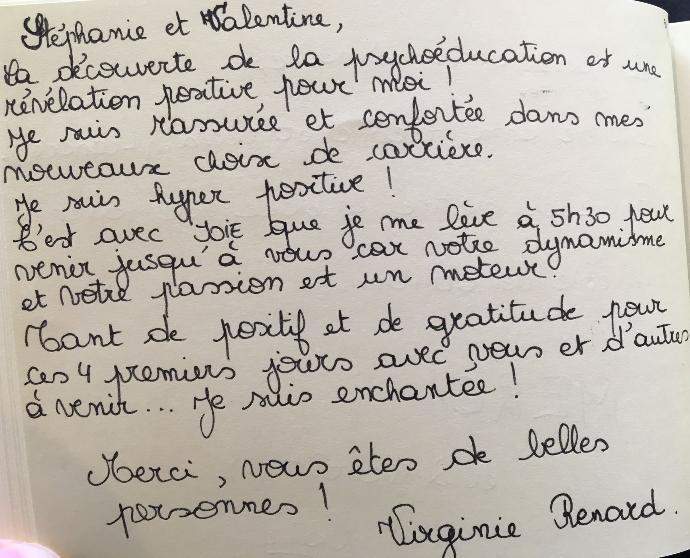 Stéphanie et Valentine,
La découverte de la psychoéducation est une
révélation positive pour moi !
Je suis rassurée et confortée dans mes
nouveaux choix de carrière.
Je suis hyper positive !
C'est avec JOIE que je me lève à 5h30 pour
venir jusqu'à vous car votre dynamisme
et votre passion est un moteur.
Tant de positif et de gratitude pour
ces 4 premiers jours avec vous et d'autres
à venir... Je suis enchantée !
Merci, vous êtes de belles
personnes !
Virginie Renard.